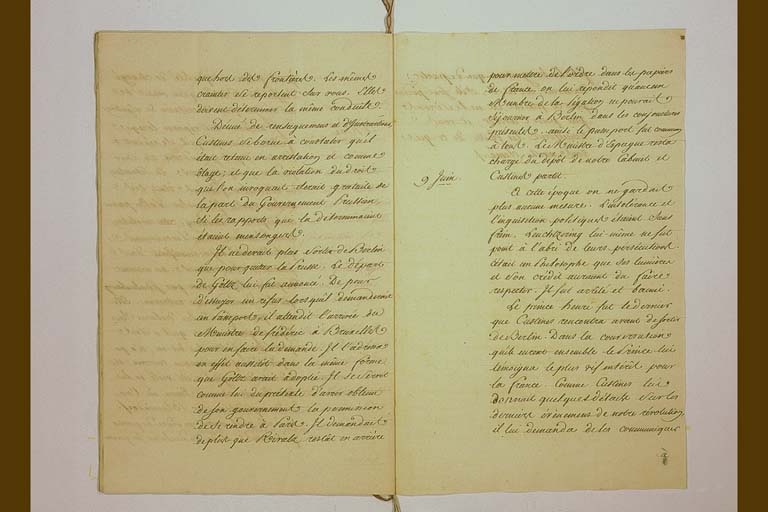 que hors des frontières. Les mêmes
craintes se reportent sur vous. Elles
doivent déterminer la même conduite.
Dénué de renseignemens et d'Instructions
Custines se borne à constater qu'il
était retenu en arrestation et comme
ôtage; et que la violation du droit
que l'on invoquait serait gratuite de
la part du Gouvernement Prussien
si les rapports que la déterminaient
étaient mensongers.
Il ne devait plus sortir de Berlin
que pour quitter la Prusse. Le départ
de Goltz lui fut annoncé. De peur
d'essuyer un refus lorsqu'il demanderait
un Passeport, il attendit l'arrivée du
Ministre de frédéric à Bruxelles
pour en faire la demande. Il l'adressa
en effet aussitôt dans la même forme
que Goltz avait adoptée. Il se servit
comme lui du prétexte d'avoir obtenu
de son gouvernement la permission
de se rendre à Paris. Il demandait
de plus que Rivals restât en arrière
pour mettre de l'ordre dans les papiers
de france, on lui répondit qu'aucun
Membre de la légation ne pourrait
séjourner à Berlin dans les conjonctures
présentes. ainsi le passeport fut commun
à tous. Le Ministre d'Espagne resta
chargé du dépôt de notre Cabinet et
9 Juin. Custines partit.
à cette époque on ne gardait
plus aucune mesure. L'intolérance et
l'inquisition politiques étaient sans
frein. lui même ne fut
point à l'abri de leurs persécutions.
c'était un Philosophe que ses lumières
et son crédit auraient du faire
respecter. Il fut arrêté et banni.
Le prince henri fut le dernier
que Custines rencontra avant de sortir
de Berlin. Dans la conversation
qu'ils eurent ensemble le Prince lui
témoigna le plus vif intérêt pour
la france. Comme Custines lui
donnait quelques détails sur les
derniers évènemens de notre révolution,
il lui demanda de les communiquer
à